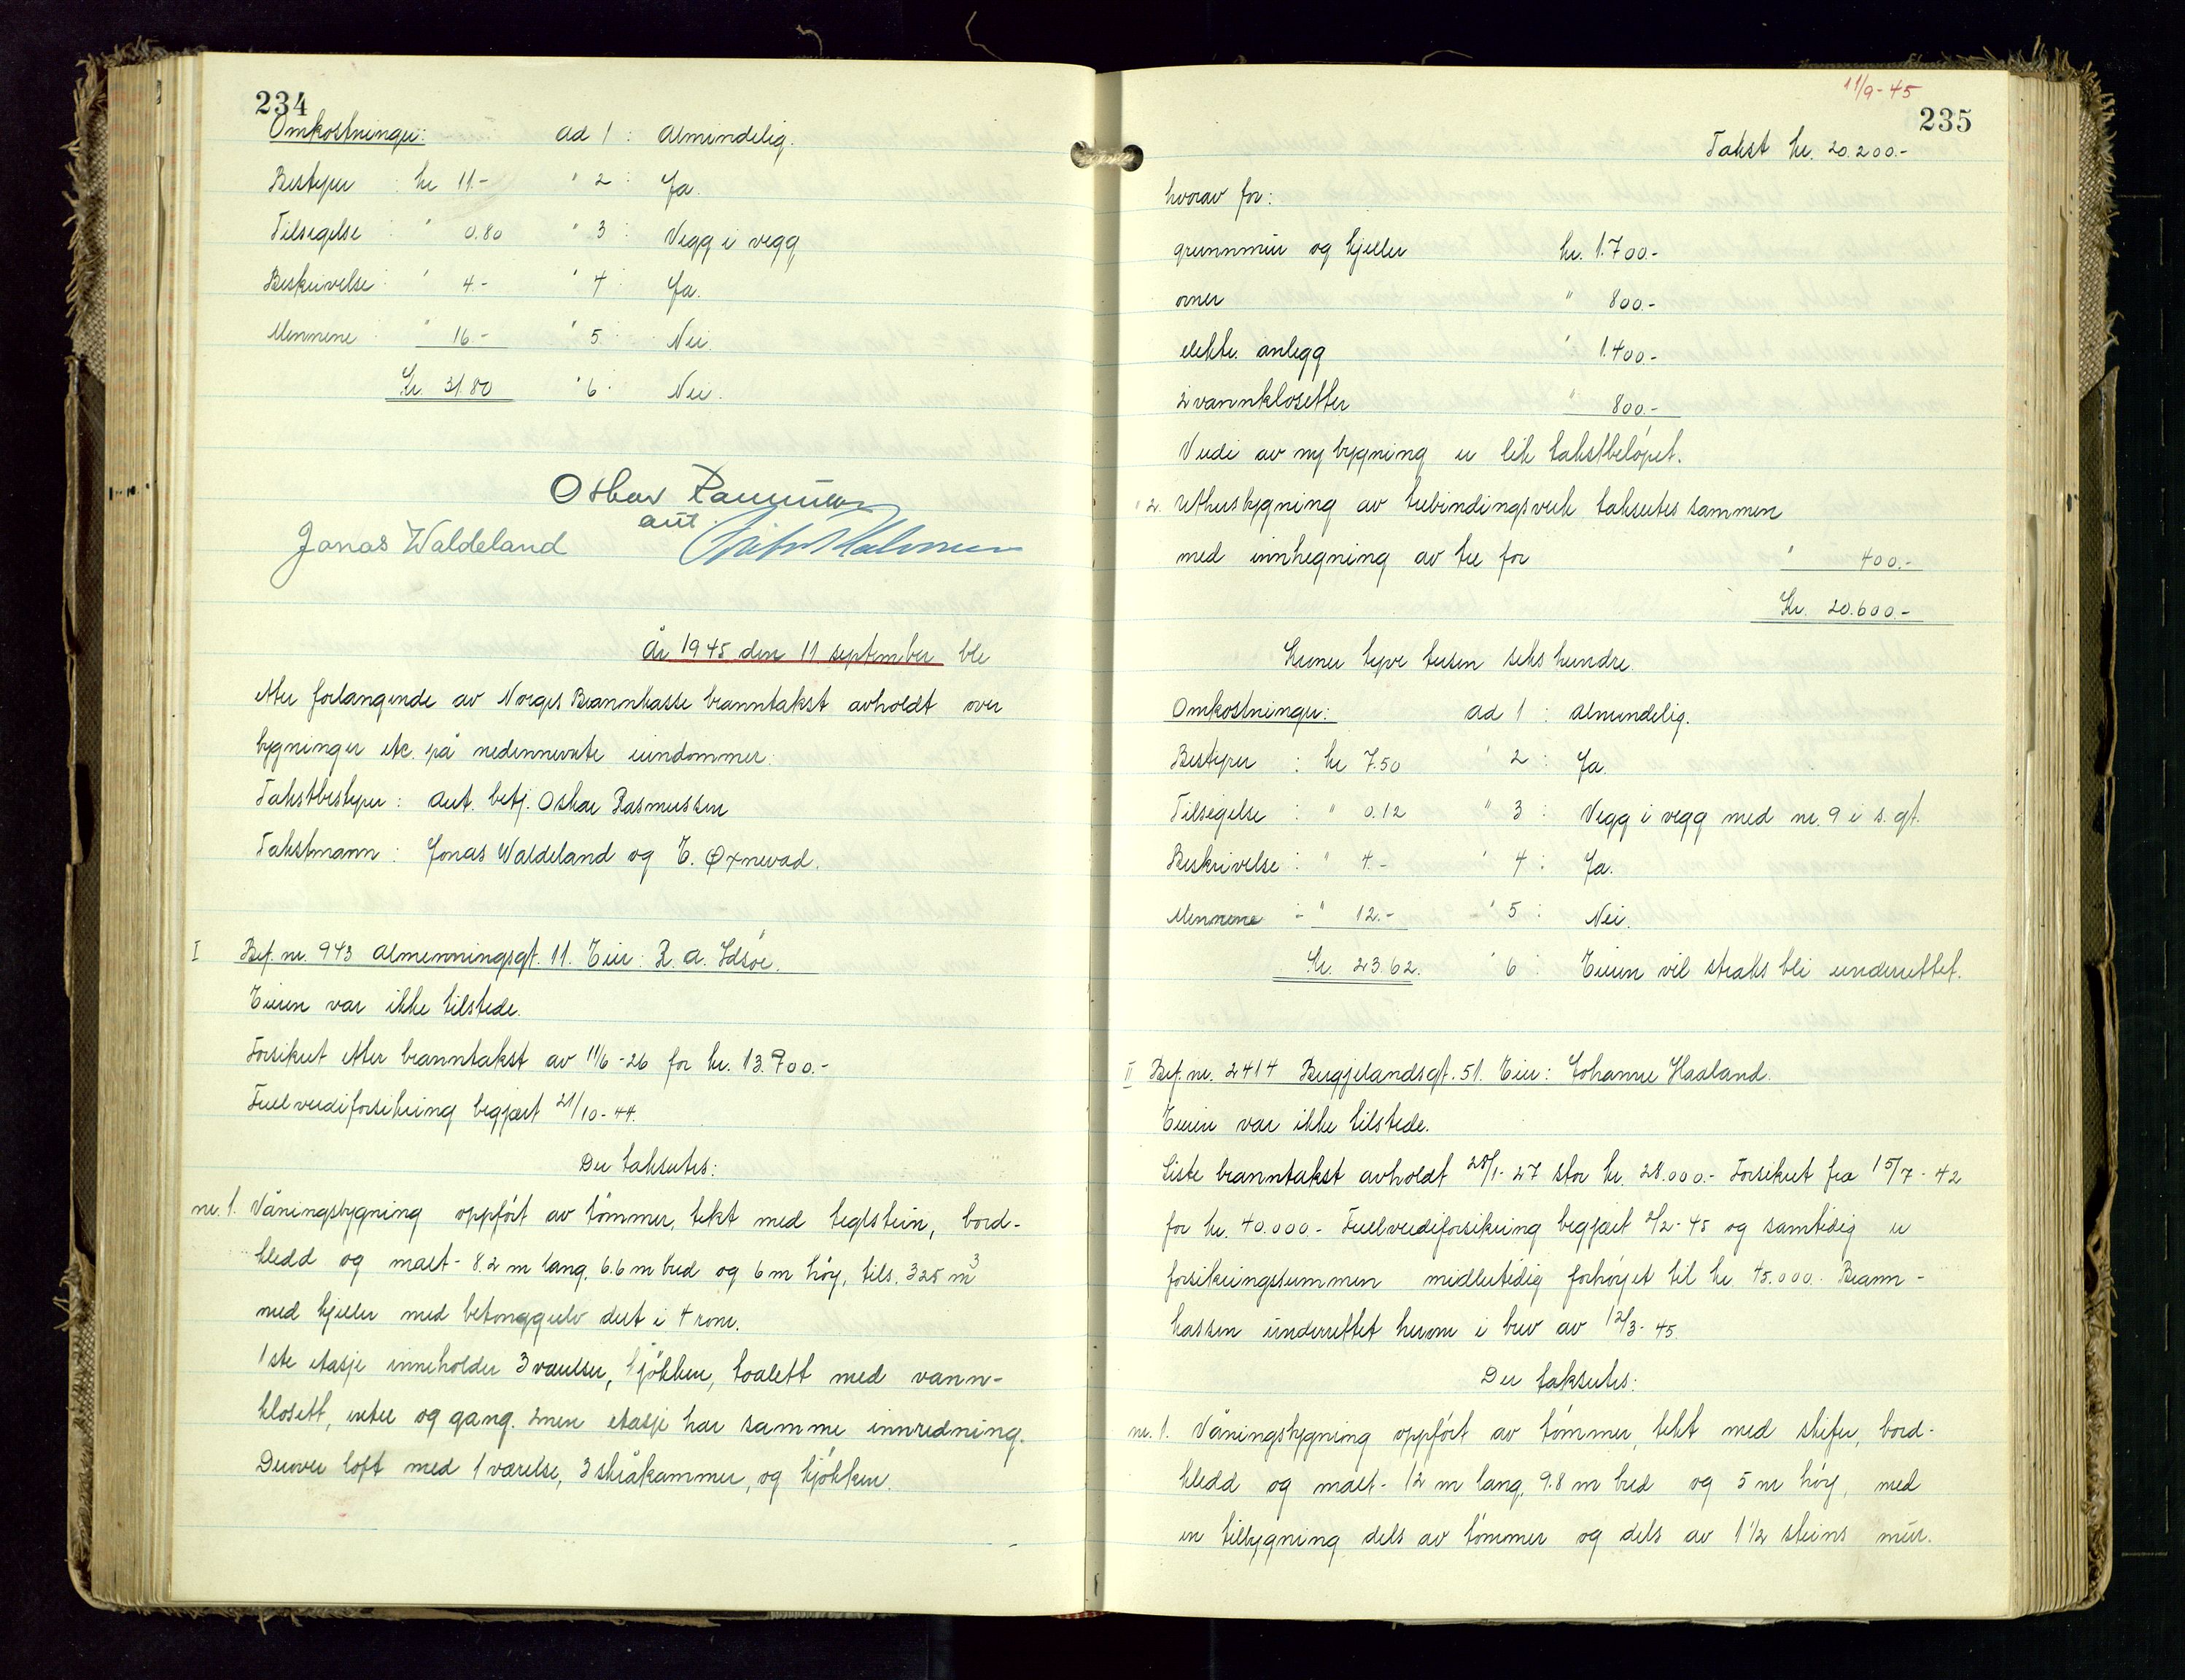 234
Omkostninger: ad 1: Almindelig.
Bestyrer : kr 11.- " 2: Ja.
Tilsigelse : " 0.80 " 3: Vegg i vegg
Beskrivelse : " 4.- " 4: Ja.
Mennene : " 16.- " 5: Nei.
Kr. 31.80 " 6: Nei.
Oskar Rasmussen
aut.
Jonas Waldeland
År 1945 den 11 september ble
etter forlangende av Norges Brannkasse branntakst avholdt over
bygninger etc. på nedennevnte eiendommer:
Takstbestyrer: Aut. betj. Oskar Rasmussen
Takstmann: Jonas Waldeland og E. Øxnevad.
I Bef. nr. 943 Almenningsgt. 11. Eier: R. A. Idsöe.
Eieren var ikke tilstede.
Forsikret etter branntakst av 11/6-26 for kr. 13.700.-
Fullverdiforsikring begjært 21/10-44.
Der takseres:
nr. 1. Våningsbygning oppfört av tömmer, tekt med teglstein, bord-
kledd og malt - 8.2 m lang, 6.6 m bred og 6 m höy, tils. 325 m³
med kjeller med betonggulv delt i 4 rom.
1ste etasje inneholder 3 værelser, kjökken, toalett med vann-
klosett, entre og gang. 2nen etasje har samme innredning.
Derover loft med 1 værelse, 3 skråkammer, og kjökken.
11/9-45
235
Takst kr. 20.200.-
hvorav for:
grunnmur og kjeller kr. 1.700.-
ovner " 800.-
elektr. anlegg " 1.400.-
2 vannklosetter " 800.-
Verdi av ny bygning er lik takstbelöpet.
" 2. Uthusbygning av trebindingsverk takseres sammen
med innhegning av tre for " 400.-
Kr. 20.600.-
Kroner tyve tusen seks hundre.
Omkostninger: ad 1: Almindelig.
Bestyrer : kr 7.50 " 2: Ja.
Tilsigelse : " 0.12 " 3: Vegg i vegg med nr. 9 i s. gt.
Beskrivelse : " 4.- " 4: Ja.
Mennene : " 12.- " 5: Nei.
Kr. 23.62. " 6: Eieren vil straks bli underrettet.
II Bef. nr. 2414 Bergjelandsgt. 51. Eier: Johanne Haaland.
Eieren var ikke tilstede.
Siste branntakst avholdt 28/1-27 stor kr. 28.000.- Forsikret fra 15/7-42
for kr. 40.000.- Fullverdiforsikring begjært 2/2-45 og samtidig er
forsikringssummen midlertidig forhöyet til kr. 45.000.- Brann-
kassen underrettet herom i brev av 12/3-45.
Der takseres:
nr. 1. Våningsbygning oppfört av tömmer, tekt med skifer, bord-
kledd og malt - 12 m lang, 9.8 m bred og 5 m höy, med
en tilbygning dels av tömmer og dels av 1 1/2 steins mur.